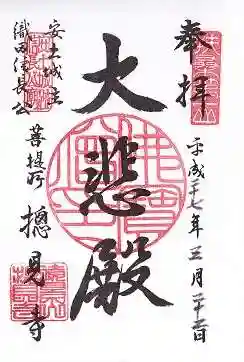 奉拝
平成二十七年三月二十二日
大悲殿
安土城主
織田信長公
菩提所
摠見寺